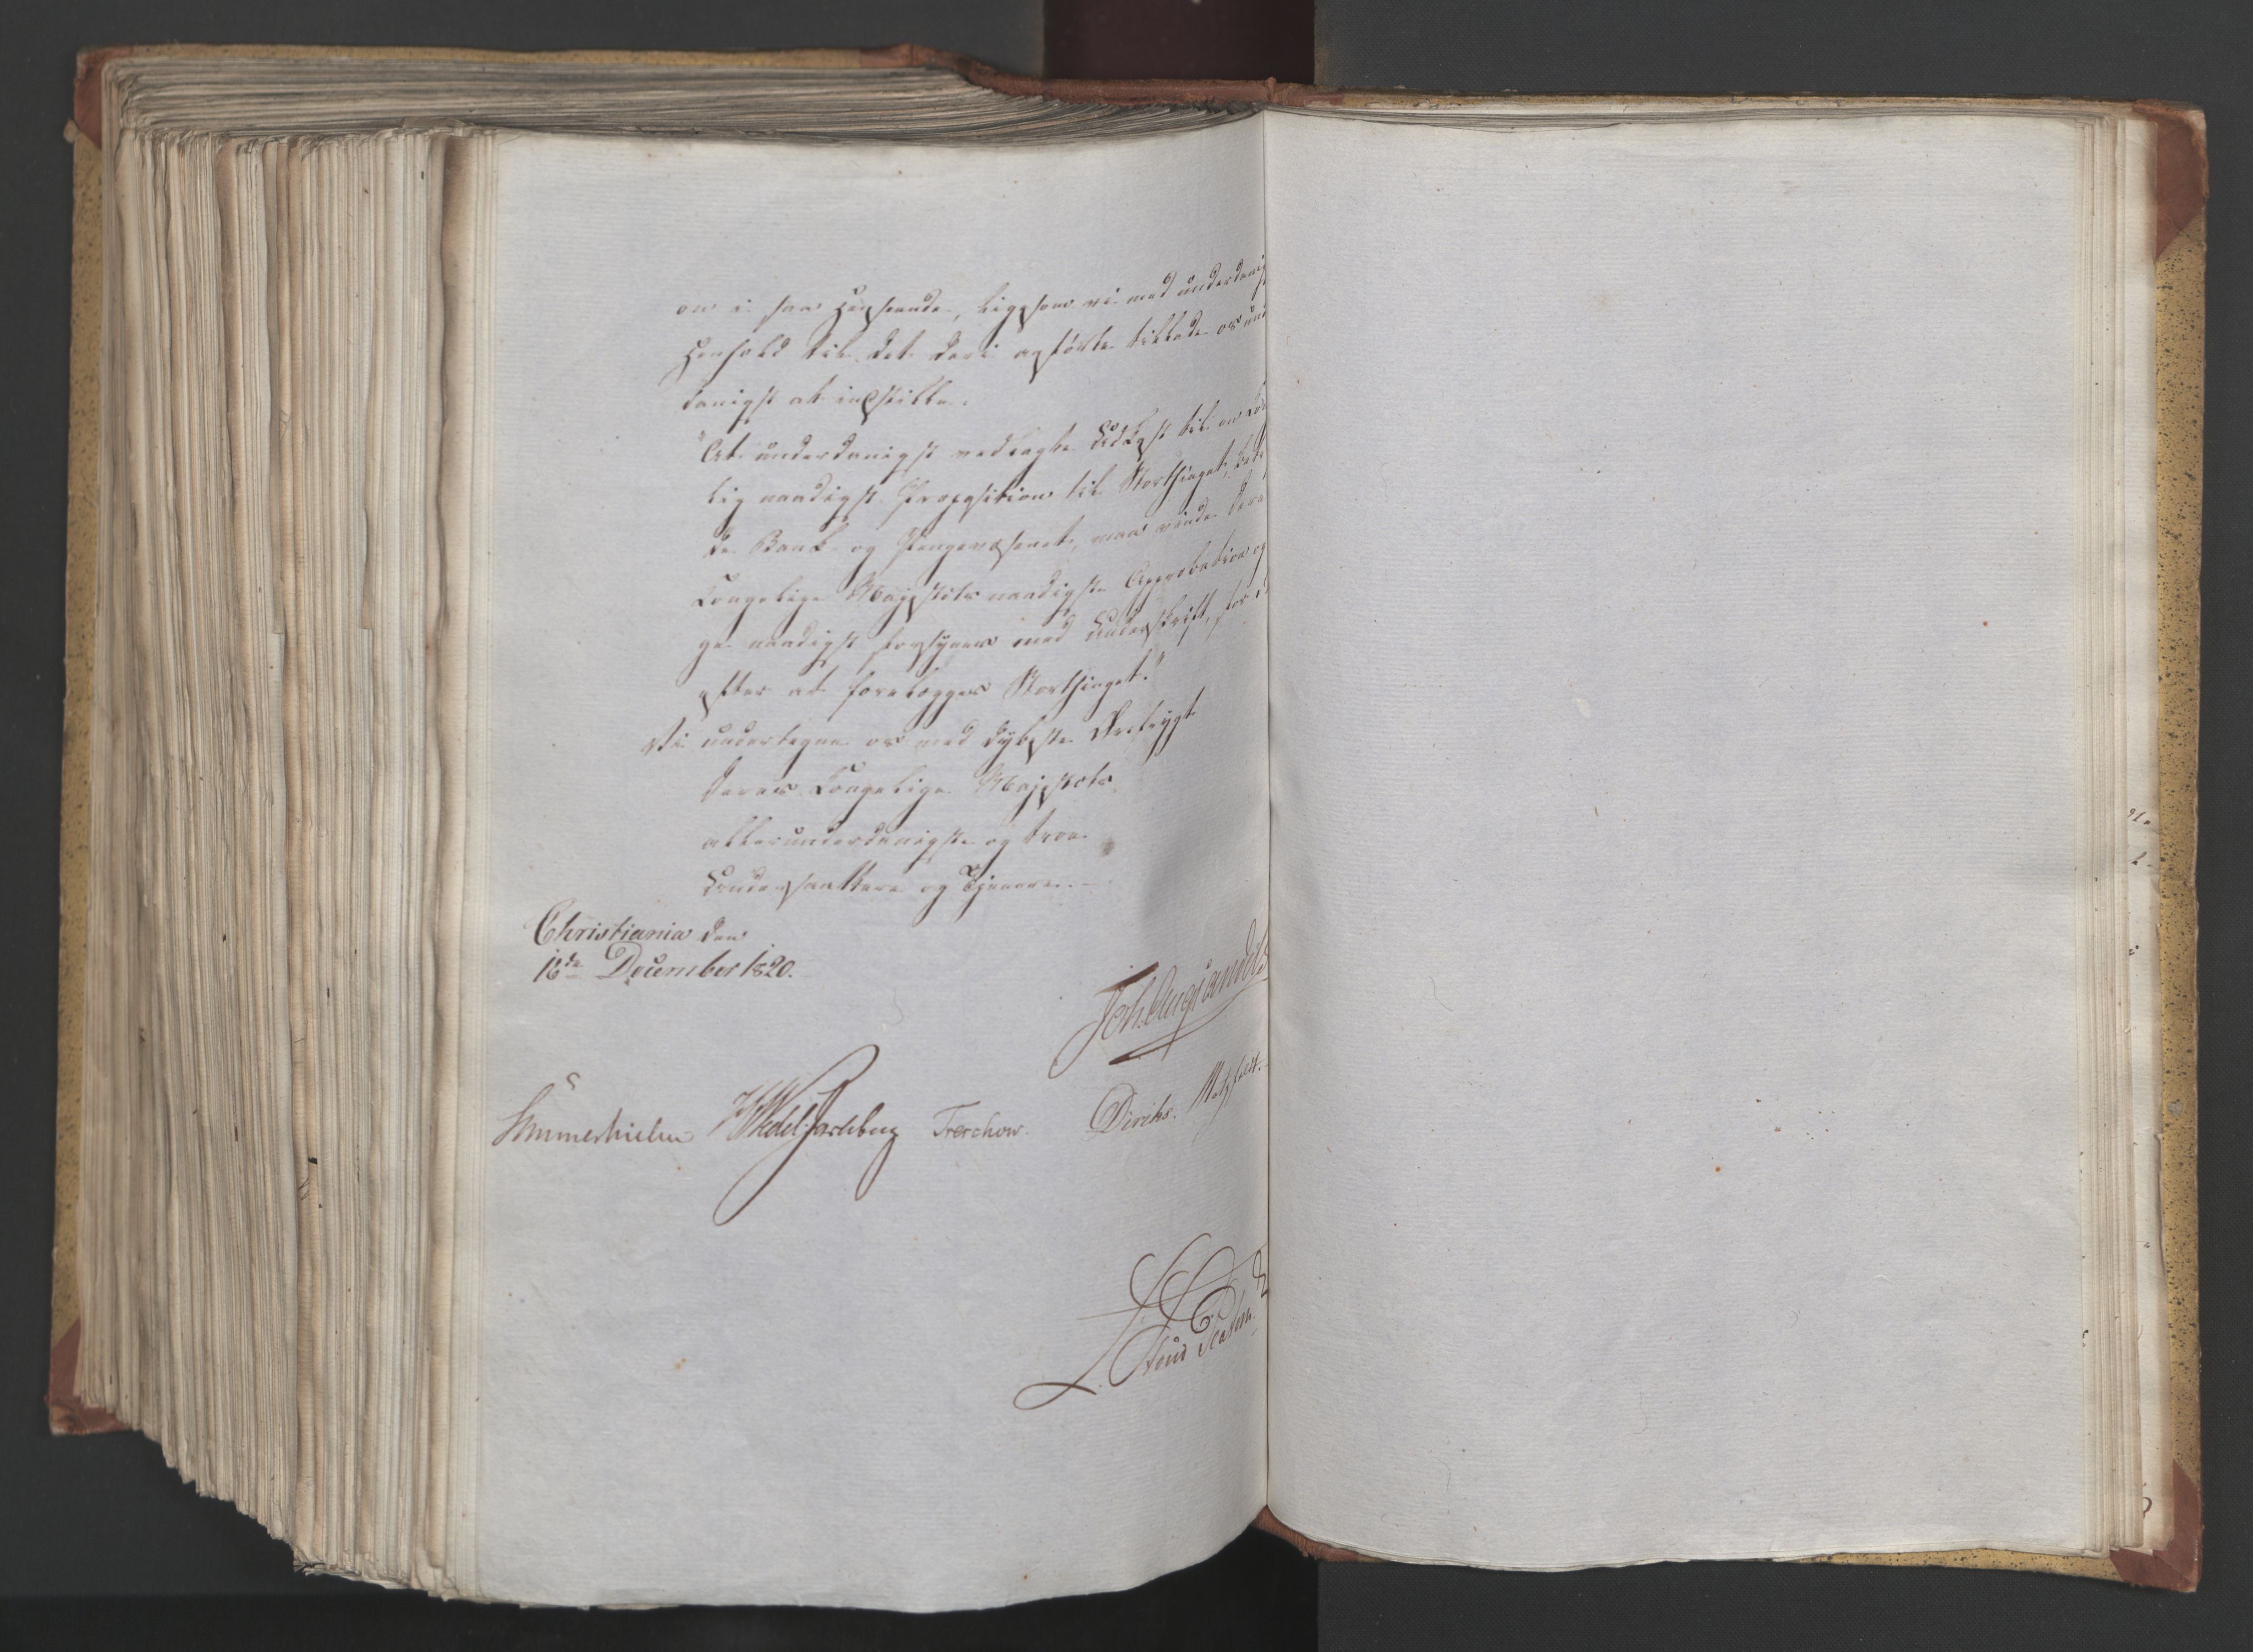 on i saa Henseende, ligesom vi med underdanig
Henhold til det deri anførte tillade os und
danigst at indstille:
"At underdanigst vedlagte Udkast til en Kon
lig naadigst Proposition til Storthinget,
de Bank- og Pengevæsenet, maa vinde Dere
Kongelige Majestæts naadigste Approbation og
ge naadigst forsynes med Underskrift, for
efter at forelægges Storthinget."
Vi undertegne os med dybeste Ærefrygt
Deres Kongelige Majestæts
allerunderdanigste og troe
Undersaattere og Tjenere.
Christiania den
16de December 1820.
Joh. Aug. Sandels
Sommerhielm HWedel Jarlsberg Treschow. Diriks. Motzfeldt.